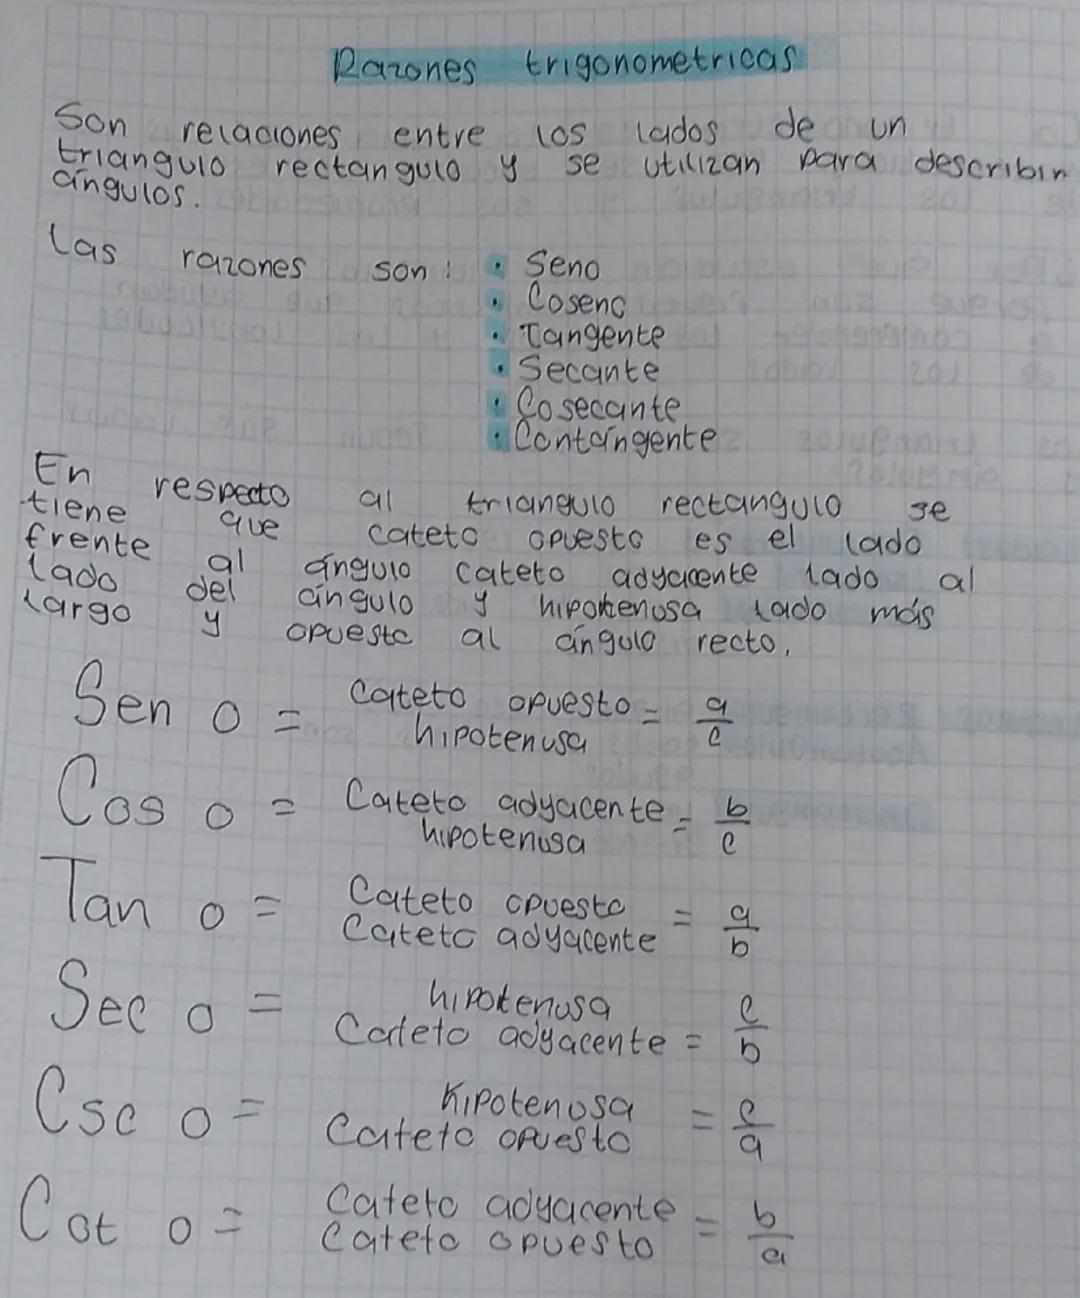 Razones trigonometricas
Son relaciones entre los lados de un
triangulo rectangulo y se utilizan para describir
ángulos.
Las razones son: • Seno
• Coseno
• Tangente
• Secante
• Cosecante
• Contángente
En respecto al triangulo rectangulo se
tiene que cateto opuesto es el lado
frente al ángulo cateto adyacente lado al
lado del ángulo y hipotenusa lado más
largo y opuesto al ángulo recto.
Sen o = Cateto opuesto / hipotenusa = a/c
Cos o = Cateto adyacente / hipotenusa = b/c
Tan o = Cateto opuesto / Cateto adyacente = a/b
Sec o = hipotenusa / Cateto adyacente = c/b
Csc o = hipotenusa / Cateto opuesto = c/a
Cot o = Cateto adyacente / Cateto opuesto = b/a